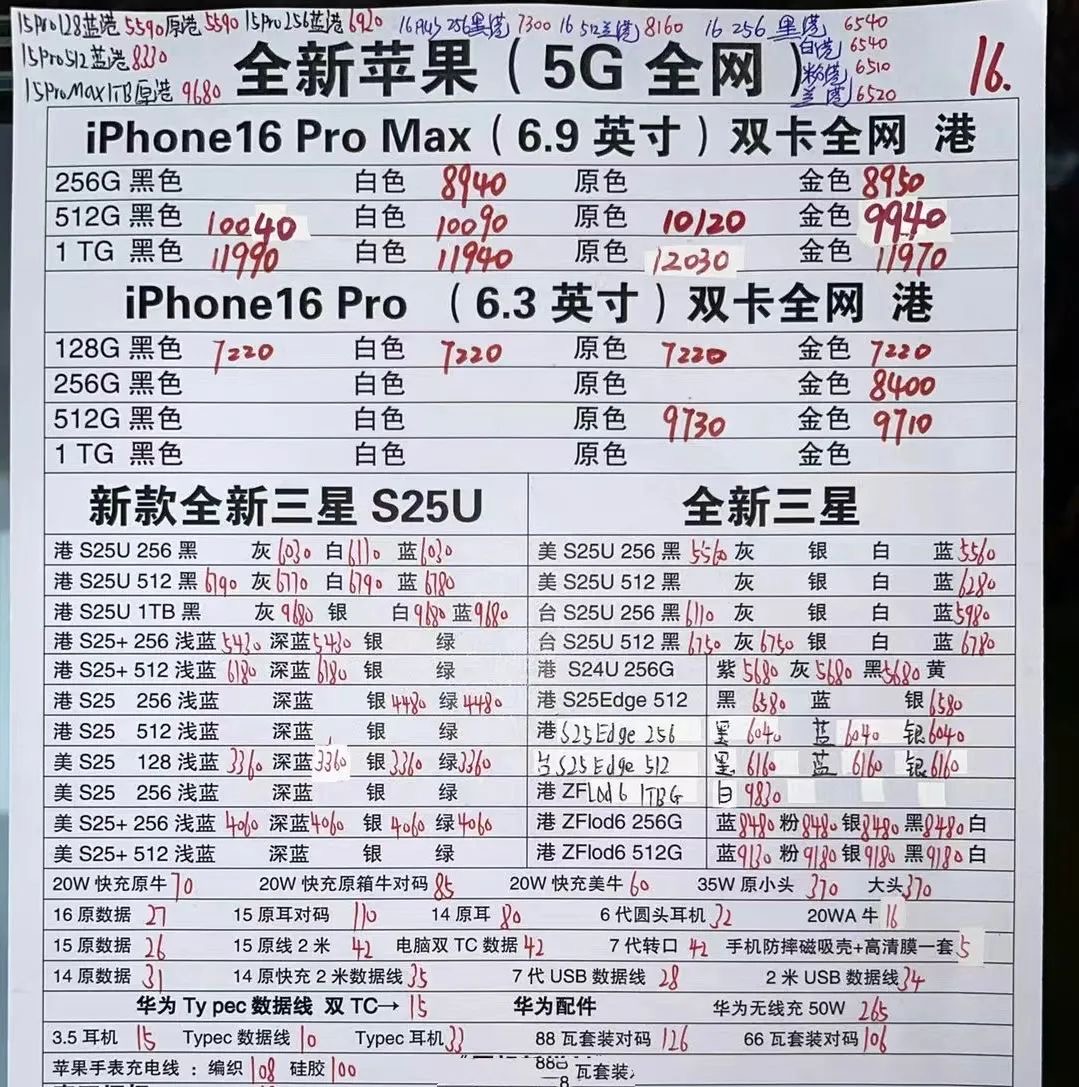 15Pro128蓝港5590原港5590 15Pro256蓝港6920 16Plus 256黑港7300 16 512兰港8160 16 256 黑港 6540
15Pro512蓝港8330 白港 6540
粉港 6510
15ProMax1TB原港9680 兰港 6520
16.
全新苹果（5G 全网）
iPhone16 Pro Max（6.9 英寸）双卡全网 港
256G 黑色 白色 8940 原色 金色 8950
512G 黑色 10040 白色 10090 原色 10120 金色 9940
1 TG 黑色 11990 白色 11940 原色 12030 金色 11970
iPhone16 Pro （6.3 英寸）双卡全网 港
128G 黑色 7220 白色 7220 原色 7220 金色 7220
256G 黑色 白色 原色 金色 8400
512G 黑色 白色 原色 9730 金色 9710
1 TG 黑色 白色 原色 金色
新款全新三星 S25U
港 S25U 256 黑 灰6030 白6110 蓝6030
港 S25U 512 黑6790 灰6770 白6790 蓝6780
港 S25U 1TB 黑 灰9680 银 白9680 蓝9680
港 S25+ 256 浅蓝5430 深蓝5430 银 绿
港 S25+ 512 浅蓝6180 深蓝6180 银 绿
港 S25 256 浅蓝 深蓝 银4480 绿4480
港 S25 512 浅蓝 深蓝 银 绿
美 S25 128 浅蓝3360 深蓝3360 银3360 绿3360
美 S25 256 浅蓝 深蓝 银 绿
美 S25+ 256 浅蓝4060 深蓝4060 银4060 绿4060
美 S25+ 512 浅蓝 深蓝 银 绿
全新三星
美 S25U 256 黑5560 灰 银 白 蓝5560
美 S25U 512 黑 灰 银 白 蓝6280
台 S25U 256 黑6110 灰 银 白 蓝5980
台 S25U 512 黑6750 灰6750 银 白 蓝6780
港 S24U 256G 紫5680 灰5680 黑5680 黄
港 S25Edge 512 黑 6580 蓝 银6580
港 S25Edge 256 黑 6040 蓝 6040 银6040
台 S25Edge 512 黑 6160 蓝 6160 银6160
港 ZFlod6 1TBG 白 9830
港 ZFlod6 256G 蓝8480 粉8480 银8480 黑8480 白
港 ZFlod6 512G 蓝9130 粉9180 银9180 黑9180 白
20W 快充原牛 70 20W 快充原箱牛对码 85 20W 快充美牛 60 35W 原小头 370 大头 370
16 原数据 27 15 原耳对码 110 14 原耳 80 6 代圆头耳机 32 20WA 牛 16
15 原数据 26 15 原线 2 米 42 电脑双 TC 数据 42 7 代转口 42 手机防摔磁吸壳+高清膜一套 5
14 原数据 31 14 原快充 2 米数据线 35 7 代 USB 数据线 28 2 米 USB 数据线 34
华为 Ty pec 数据线 双 TC→ 15 华为配件 华为无线充 50W 265
3.5 耳机 15 Typec 数据线 10 Typec 耳机 33 88 瓦套装对码 126 66 瓦套装对码 106
苹果手表充电线 : 编织 108 硅胶 100 瓦套装